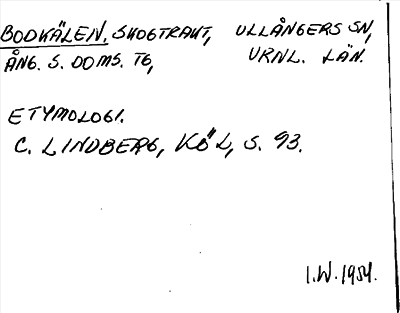 BODKÄLEN. SKOGTRAKT, ULLÅNGERS SN,
ÅNG. S. DOMS. TG, VRNL. LÄN.
ETYMOLOGI.
C. LINDBERG, KÖL, S. 93.
I.W. 1954.